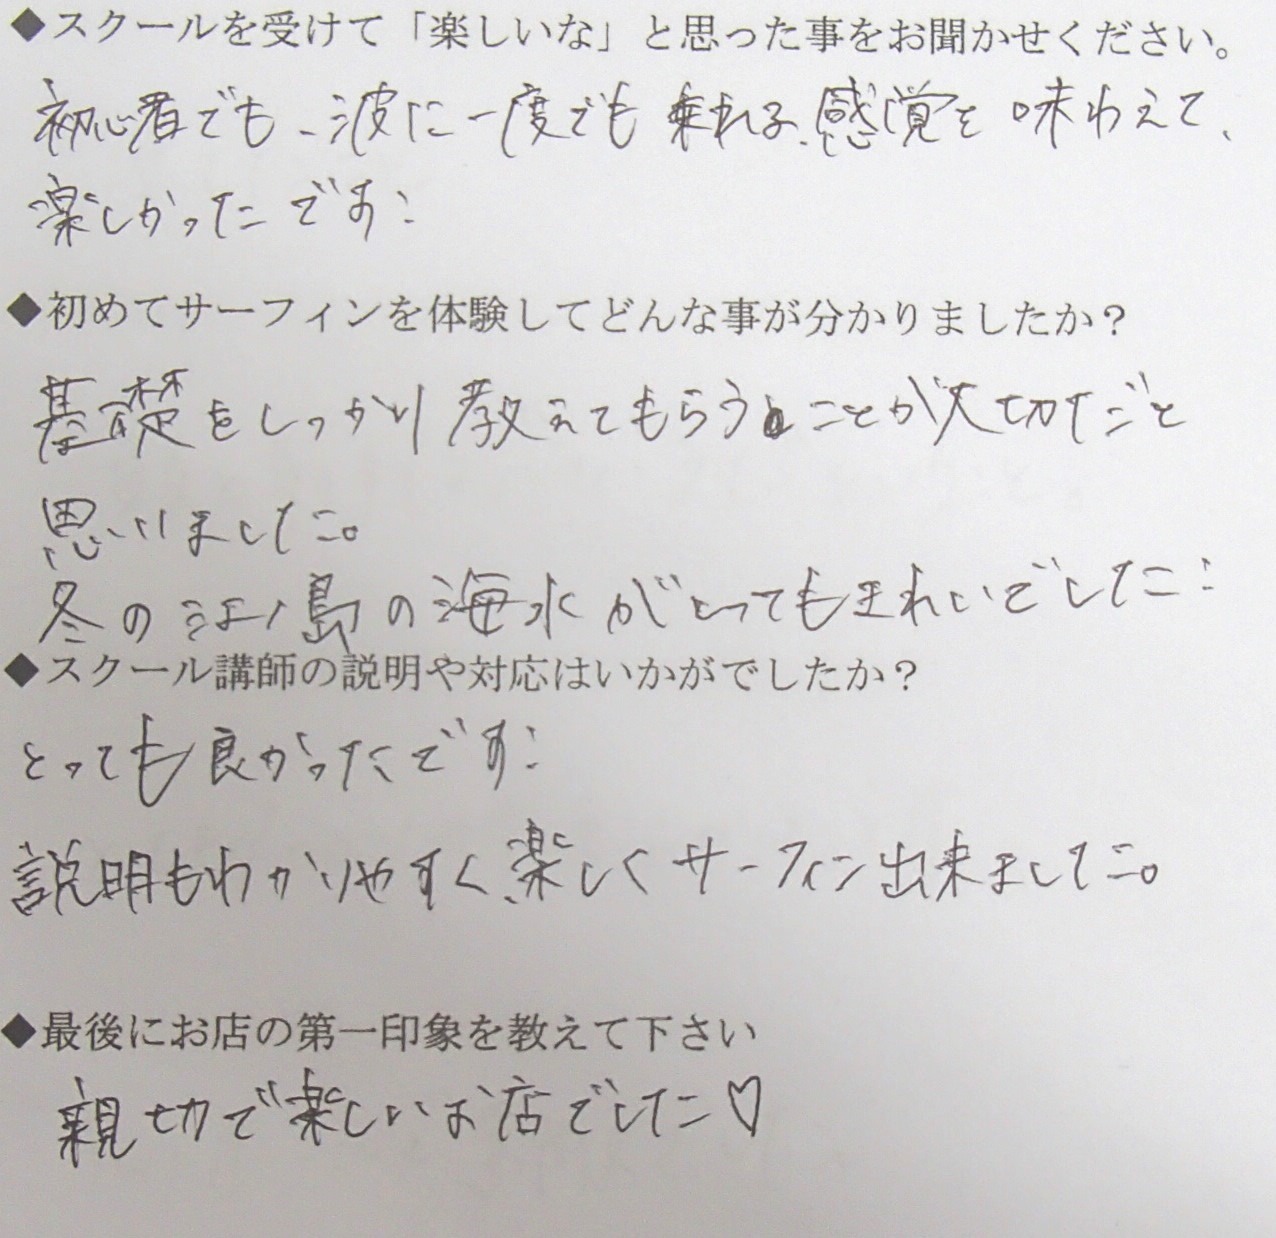 ◆スクールを受けて「楽しいな」と思った事をお聞かせください。
初心者でも、波に一度でも乗れる、感覚を味わえて、
楽しかったです!
◆初めてサーフィンを体験してどんな事が分かりましたか？
基礎をしっかり教えてもらうことが大切だと
思いました。
冬の江ノ島の海水がとってもきれいでした!
◆スクール講師の説明や対応はいかがでしたか？
とっても良かったです!
説明もわかりやすく、楽しくサーフィン出来ました。
◆最後にお店の第一印象を教えて下さい
親切で楽しいお店でした♡